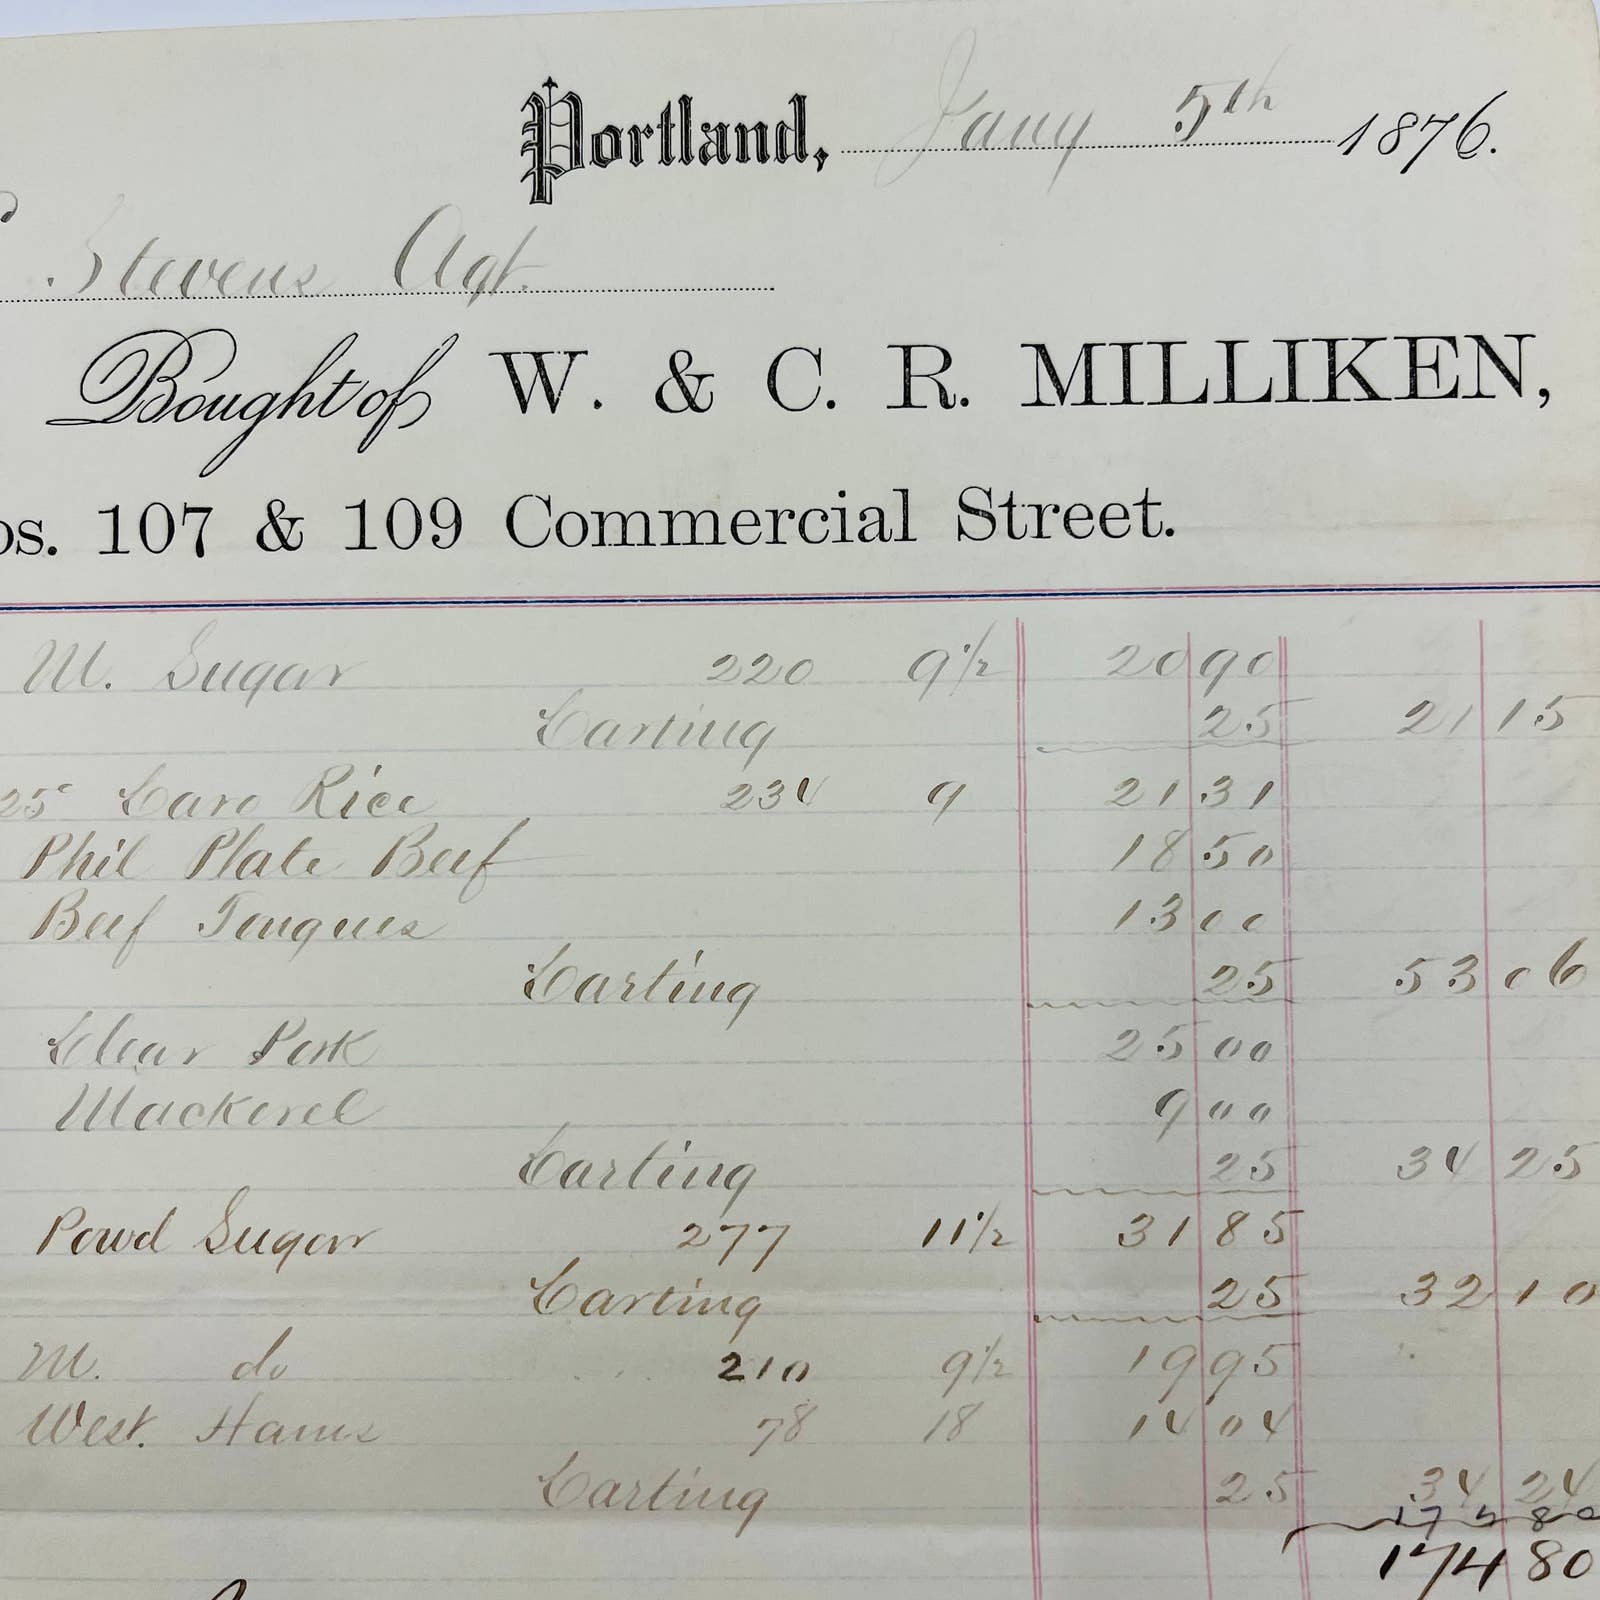 Portland, Jany 5th 1876.
Stevens Agt.
Bought of W. & C. R. MILLIKEN,
os. 107 & 109 Commercial Street.
M. Sugar 220 9 1/2 20 90
Carting 25 21 15
25 Caro Rice 234 9 21 31
Phil Plate Beef 18 50
Beef Tongues 13 00
Carting 25 53 06
Clear Pork 25 00
Mackerel 9 00
Carting 25 34 25
Powd Sugar 277 11 1/2 31 85
Carting 25 32 10
M. do 210 9 1/2 19 95
West. Hams 78 18 14 04
Carting 25 34 24
174 80